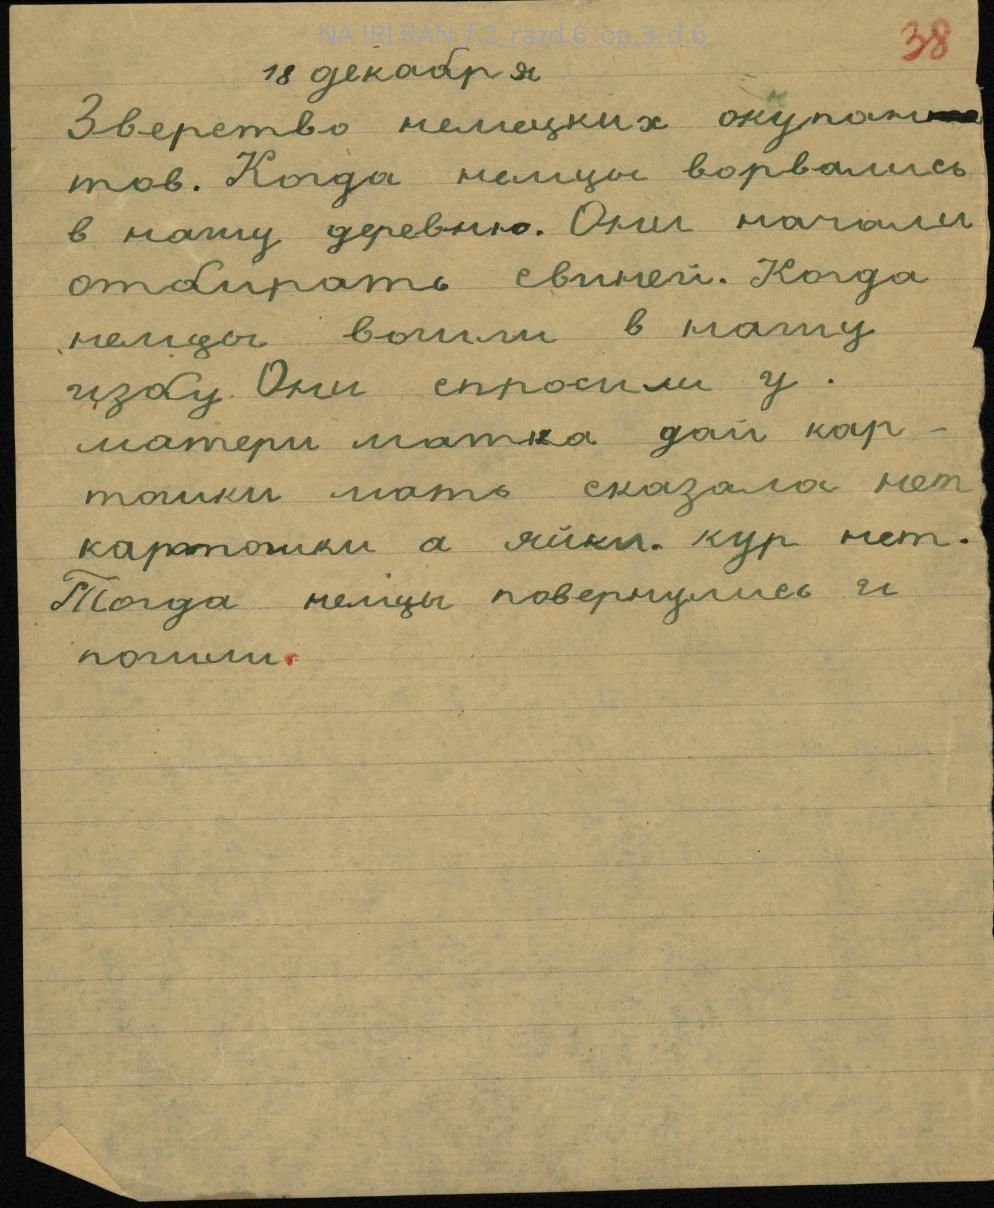 NA IRI RAN_f.2_razd.6_op.3_d.6
38
18 декабря
Зверство немецких окупан
тов. Когда немцы ворвались
в нашу деревню. Они начали
отбирать свиней. Когда
немцы вошли в нашу
избу. Они спросили у
матери матка дай кар-
тошки мать сказала нет
картошки а яйки. кур нет.
Тогда немцы повернулись и
пошли.